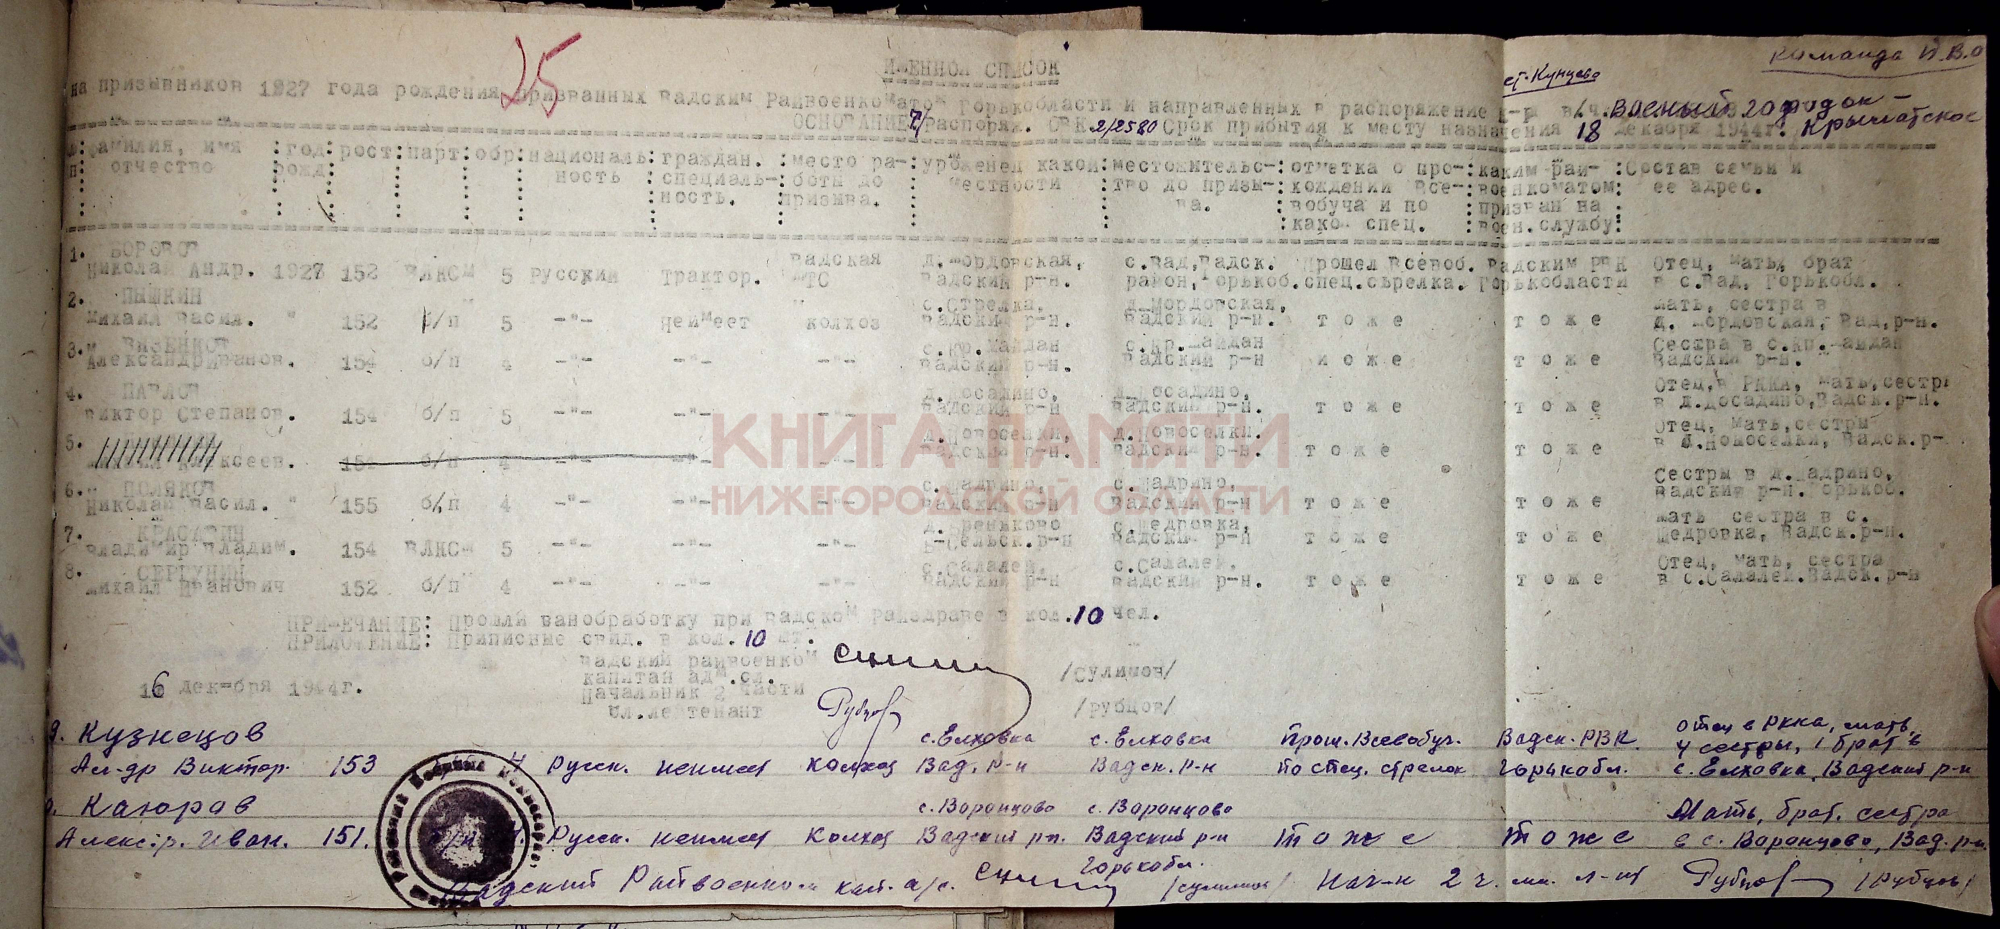 Команда И.В.О
25
ИМЕННОЙ СПИСОК
ст. Кунцево
на призывников 1927 года рождения призванных Вадским Райвоенкоматом Горькобласти и направленных в распоряжение к-ра в/ч. Военый городок -
ОСНОВАНИЕ: Распоряж. ОВК 2/2580 Срок прибытия к месту назначения 18 декабря 1944г. Крылатское
фамилия, имя :год :рост:парт:обр:националь:граждан. :место ра-:уроженец какой:местожительс-:отметка о про-:каким рай- :Состав семьи и
п: отчество :рожд: ность :специаль-:боты до : местности :тво до призы-:хождении все-:военкоматом: ее адрес.
:ность. :призыва. : ва. :вобуча и по :призван на :
:како спец. :воен.службу:
1. БОРЕВОВ Вадская д.Мордовская, с.Вад,Вадск. Прошел Всевоб. Вадским РВК Отец, мать, брат
Николай Андр. 1927 152 ВЛКСМ 5 Русский Трактор. МТС Вадский р-н. район,Горькоб. спец.стрелка. Горькобласти в с.Вад, Горькобл.
2. ПЫШКИН с.Стрелка, д.Мордовская, мать, сестра в
Михаил Васил. " 152 б/п 5 -"- Неимеет колхоз Вадский р-н. Вадский р-н. т о ж е т о ж е д. Мордовская, Вад,р-н.
3. с.Кр.Майдан с.Кр.Майдан Сестра в с.Кр.Майдан
Александр Иванов. 154 б/п 4 -"- -"- -"- Вадский р-н. Вадский р-н и о ж е т о ж е Вадский р-н.
4. ПАВЛОВ д.Досадино, д.Досадино, Отец,в РККА, мать,сестры
Виктор Степанов. 154 б/п 5 -"- -"- -"- Вадский р-н Вадский р-н. т о ж е т о ж е в д.Досадино,Вадск.р-н.
5. д.Новоселки, д.Новоселки. Отец, мать,сестры
ксеев. 154 б/п 4 -"- -"- -"- Вадский р-н. Вадский р-н. т о ж е т о ж е в д.Новоселки, Вадск.р-
6. ПОЛЯКОВ с.Шадрино, с.Шадрино, Сестры в д.Шадрино,
Николай Васил. " 155 б/п 4 -"- -"- -"- Вадский р-н Вадский р-н т о ж е т о ж е Вадский р-н. Горькоб.
7. КРАСАВИН с.Щедровка, мать сестра в с.
Владимир Владим. 154 ВЛКСМ 5 -"- -"- -"- р-н Вадский р-н т о ж е т о ж е Щедровка, Вадск.р-н.
8. СЕРГУНИН с.Салалей, с.Салалей. Отец, мать, сестра
Михаил Иванович 152 б/п 4 -"- -"- -"- Вадский р-н Вадский р-н. т о ж е т о ж е в с.Салалей.Вадск.р-н
КНИГА ПАМЯТИ
НИЖЕГОРОДСКОЙ ОБЛАСТИ
ПРИМЕЧАНИЕ: Прошли ванобработку при Вадском Райздраве в кол.10 чел.
ПРИЛОЖЕНИЕ: Приписные свид. в кол. 10 шт.
Вадский райвоенком
капитан адм.сл. /Сулимов/
16 декабря 1944г. Начальник 2 части
мл.лейтенант /Рубцов/
9. Кузнецов с. Елховка с. Елховка Прош. Всевобуч. Вадск. РВК отец в РККА, мать,
Ал-др Виктор. 153 4 Русск. неимеет колхоз Вад. р-н Вадск. р-н по спец. стрелок Горькобл. 4 сестры, 1 брат в
с. Елховка, Вадский р-н
Каюров с. Воронцово с. Воронцово Мать, брат. сестра
Алексдр. Иван. 151. Русск. неимеет Колхоз Вадский р-н. Вадский р-н т о ж е т о ж е в с. Воронцово, Вад. р-н.
Горькобл.
Вадский Райвоенком кап. а/с. /Сулимов/ Нач-к 2 ч. мл. л-нт Рубцов /Рубцов/